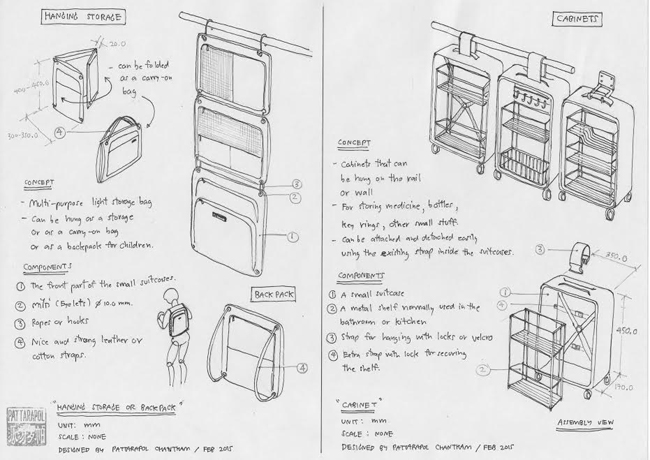 HANGING STORAGE
20.0
400-450.0
300-350.0
- can be folded
as a carry-on
bag
④
CONCEPT
- Multi-purpose light storage bag
- Can be hung as a storage
or as a carry-on bag
or as a backpack for children.
COMPONENTS
① The front part of the small suitcases.
② (Eyelets) Ø 10.0 mm.
③ Ropes or hooks
④ Nice and strong leather or
cotton straps.
③
②
①
BACKPACK
④
PATTARAPOL
"HANGING STORAGE OR BACKPACK"
UNIT: mm
SCALE: NONE
DESIGNED BY PATTARAPOL CHANTHAM / FEB 2015
CABINETS
CONCEPT
- Cabinets that can
be hung on the rail
or wall
- For storing medicine, bottles,
key rings, other small stuff.
- Can be attached and detached easily
using the existing strap inside the suitcases.
COMPONENTS
① A small suitcase
② A metal shelf normally used in the
bathroom or kitchen
③ Strap for hanging with locks or velcro
④ Extra strap with lock for securing
the shelf.
③
350.0
①
④
450.0
②
170.0
ASSEMBLY VIEW
"CABINET"
UNIT: mm
SCALE: NONE
DESIGNED BY PATTARAPOL CHANTHAM / FEB 2015